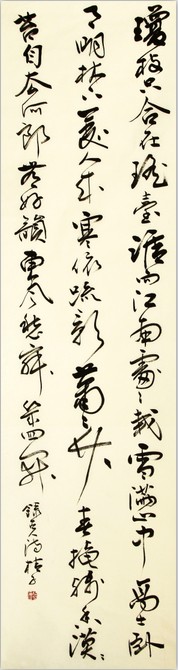 瓊姿只合在瑤臺誰向江南處〻栽雪滿山中高士臥
月明林下美人來寒依疏影蕭〻竹春掩殘香漠〻
苔自去何郎無好韻東風愁寂幾回開